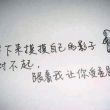 下来摸摸自己的影子
对不起,
跟着我让你受委屈